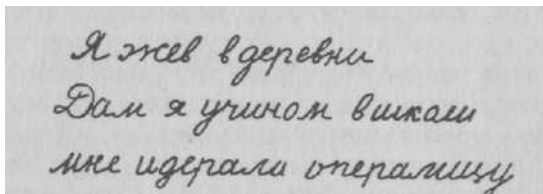 Я жев вдеревни
Дам я учином вшкаш
мне идерали опералицу